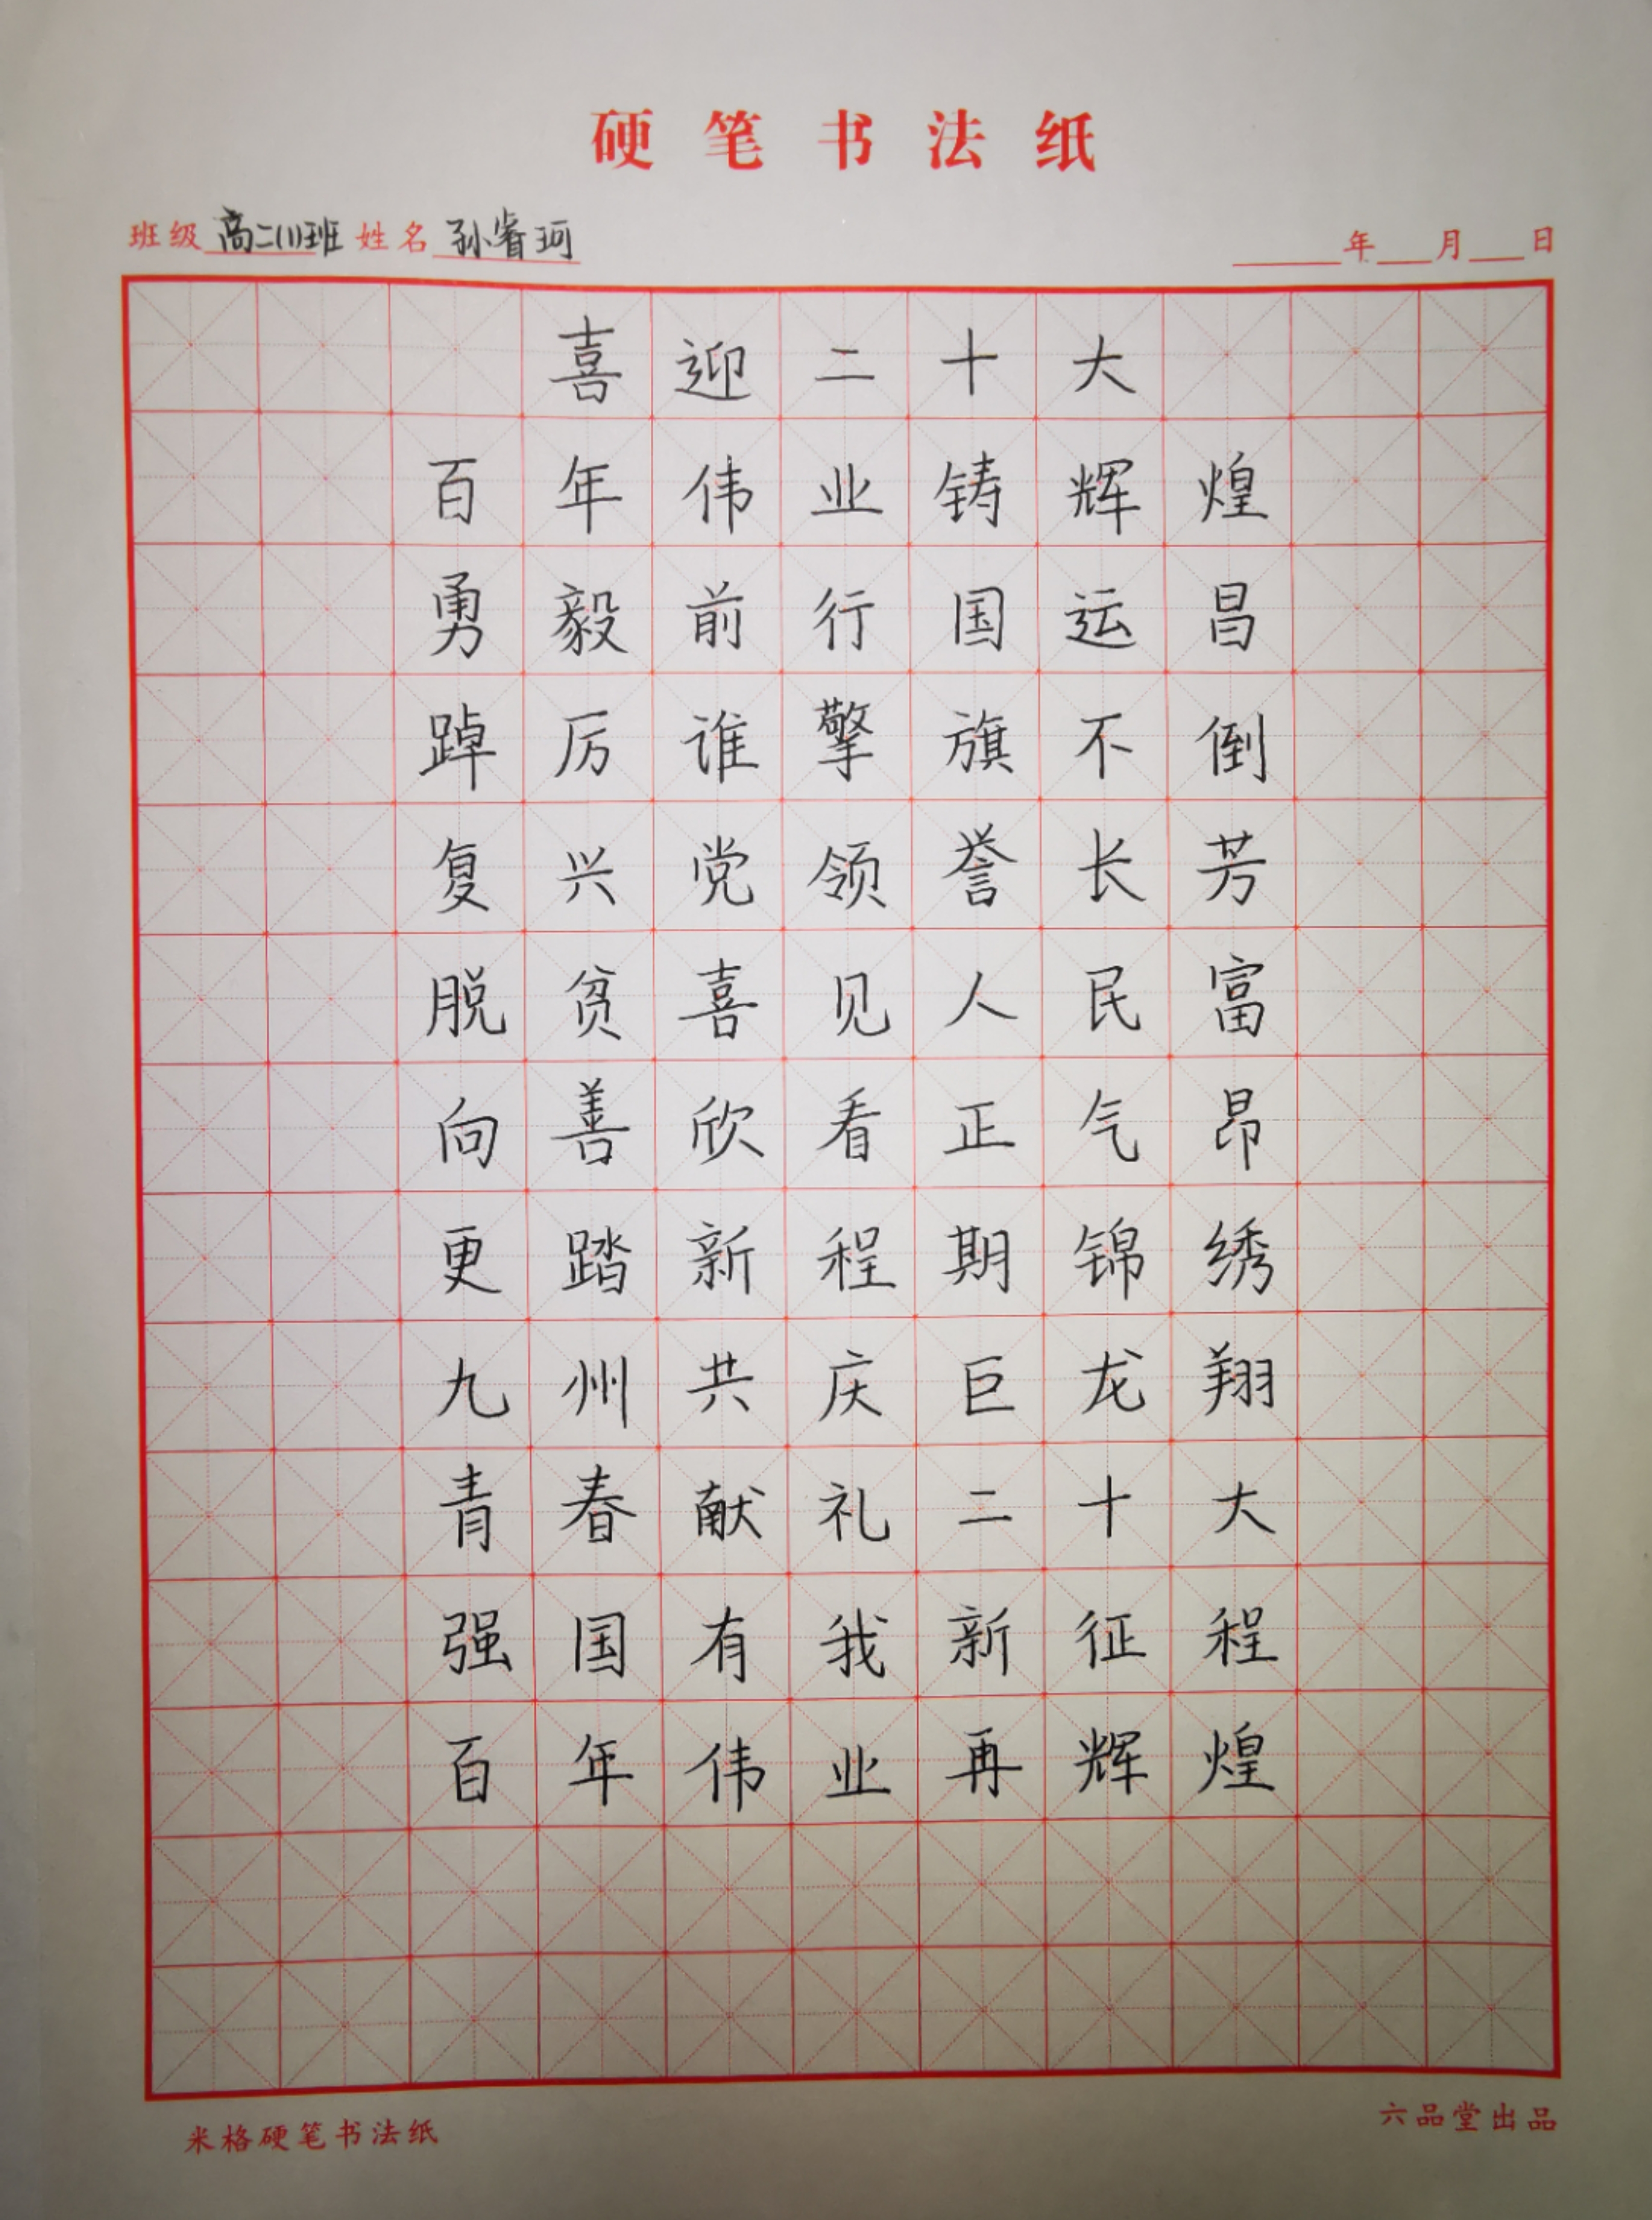 硬笔书法纸
班级 高二(1)班 姓名 孙睿珂 年 月 日
喜迎二十大
百年伟业铸辉煌
勇毅前行国运昌
踔厉谁擎旗不倒
复兴党领誉长芳
脱贫喜见人民富
向善欣看正气昂
更踏新程期锦绣
九州共庆巨龙翔
青春献礼二十大
强国有我新征程
百年伟业再辉煌
米格硬笔书法纸 六品堂出品